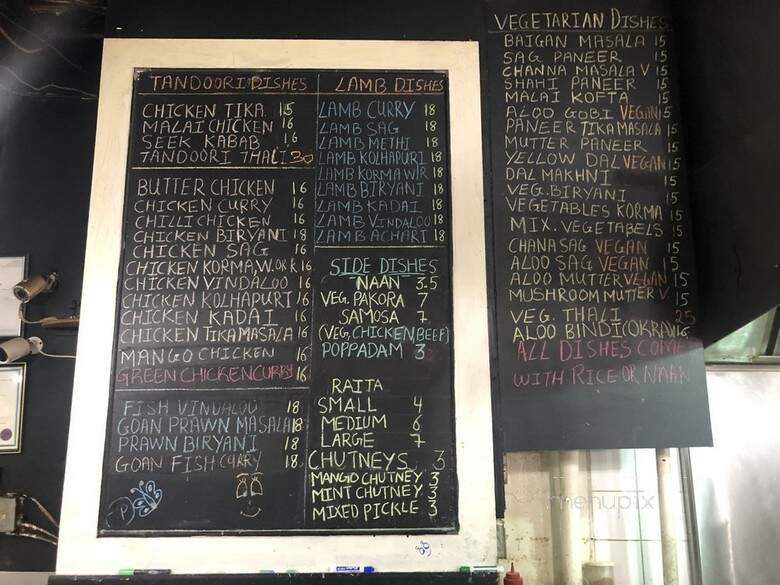 TANDOORI DISHES
CHICKEN TIKA 15
MALAI CHICKEN 16
SEEK KABAB 16
TANDOORI THALI 30
BUTTER CHICKEN 16
CHICKEN CURRY 16
CHILLI CHICKEN 16
CHICKEN BIRYANI 18
CHICKEN SAG 16
CHICKEN KORMA, W. OR K 16
CHICKEN VINDALOO 16
CHICKEN KOLHAPURI 16
CHICKEN KADAI 16
CHICKEN TIKA MASALA 16
MANGO CHICKEN 16
GREEN CHICKEN CURRY 16
FISH VINDALOO 18
GOAN PRAWN MASALA 18
PRAWN BIRYANI 18
GOAN FISH CURRY 18
P
LAMB DISHES
LAMB CURRY 18
LAMB SAG 18
LAMB METHI 18
LAMB KOLHAPURI 18
LAMB KORMA WR 18
LAMB BIRYANI 18
LAMB KADAI 18
LAMB VINDALOO 18
LAMB ACHARI 18
SIDE DISHES
NAAN 3.5
VEG. PAKORA 7
SAMOSA 7
(VEG, CHICKEN, BEEF)
POPPADAM 3
RAITA
SMALL 4
MEDIUM 6
LARGE 7
CHUTNEYS 3
MANGO CHUTNEY 3
MINT CHUTNEY 3
MIXED PICKLE 3
VEGETARIAN DISHES
BAIGAN MASALA 15
SAG PANEER 15
CHANNA MASALA V 15
SHAHI PANEER 15
MALAI KOFTA 15
ALOO GOBI VEGAN 15
PANEER TIKA MASALA 15
MUTTER PANEER 15
YELLOW DAL VEGAN 15
DAL MAKHNI 15
VEG. BIRYANI 15
VEGETABLES KORMA 15
MIX. VEGETABELS 15
CHANA SAG VEGAN 15
ALOO SAG VEGAN 15
ALOO MUTTER VEGAN 15
MUSHROOM MUTTER V 15
VEG. THALI 25
ALOO BINDI (OKRA) V 16
ALL DISHES COME
WITH RICE OR NAAN
menupix